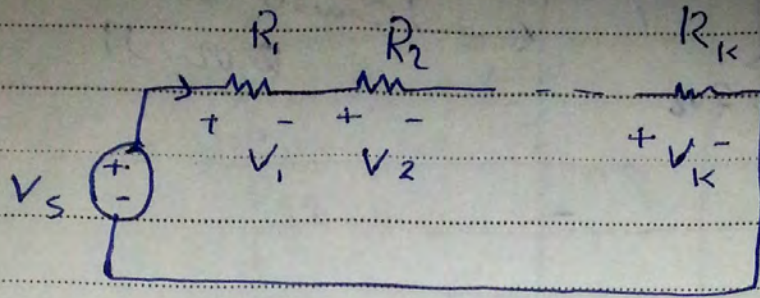 R₁ R₂ Rₖ
+ - + - + -
V₁ V₂ Vₖ
+
-
Vₛ